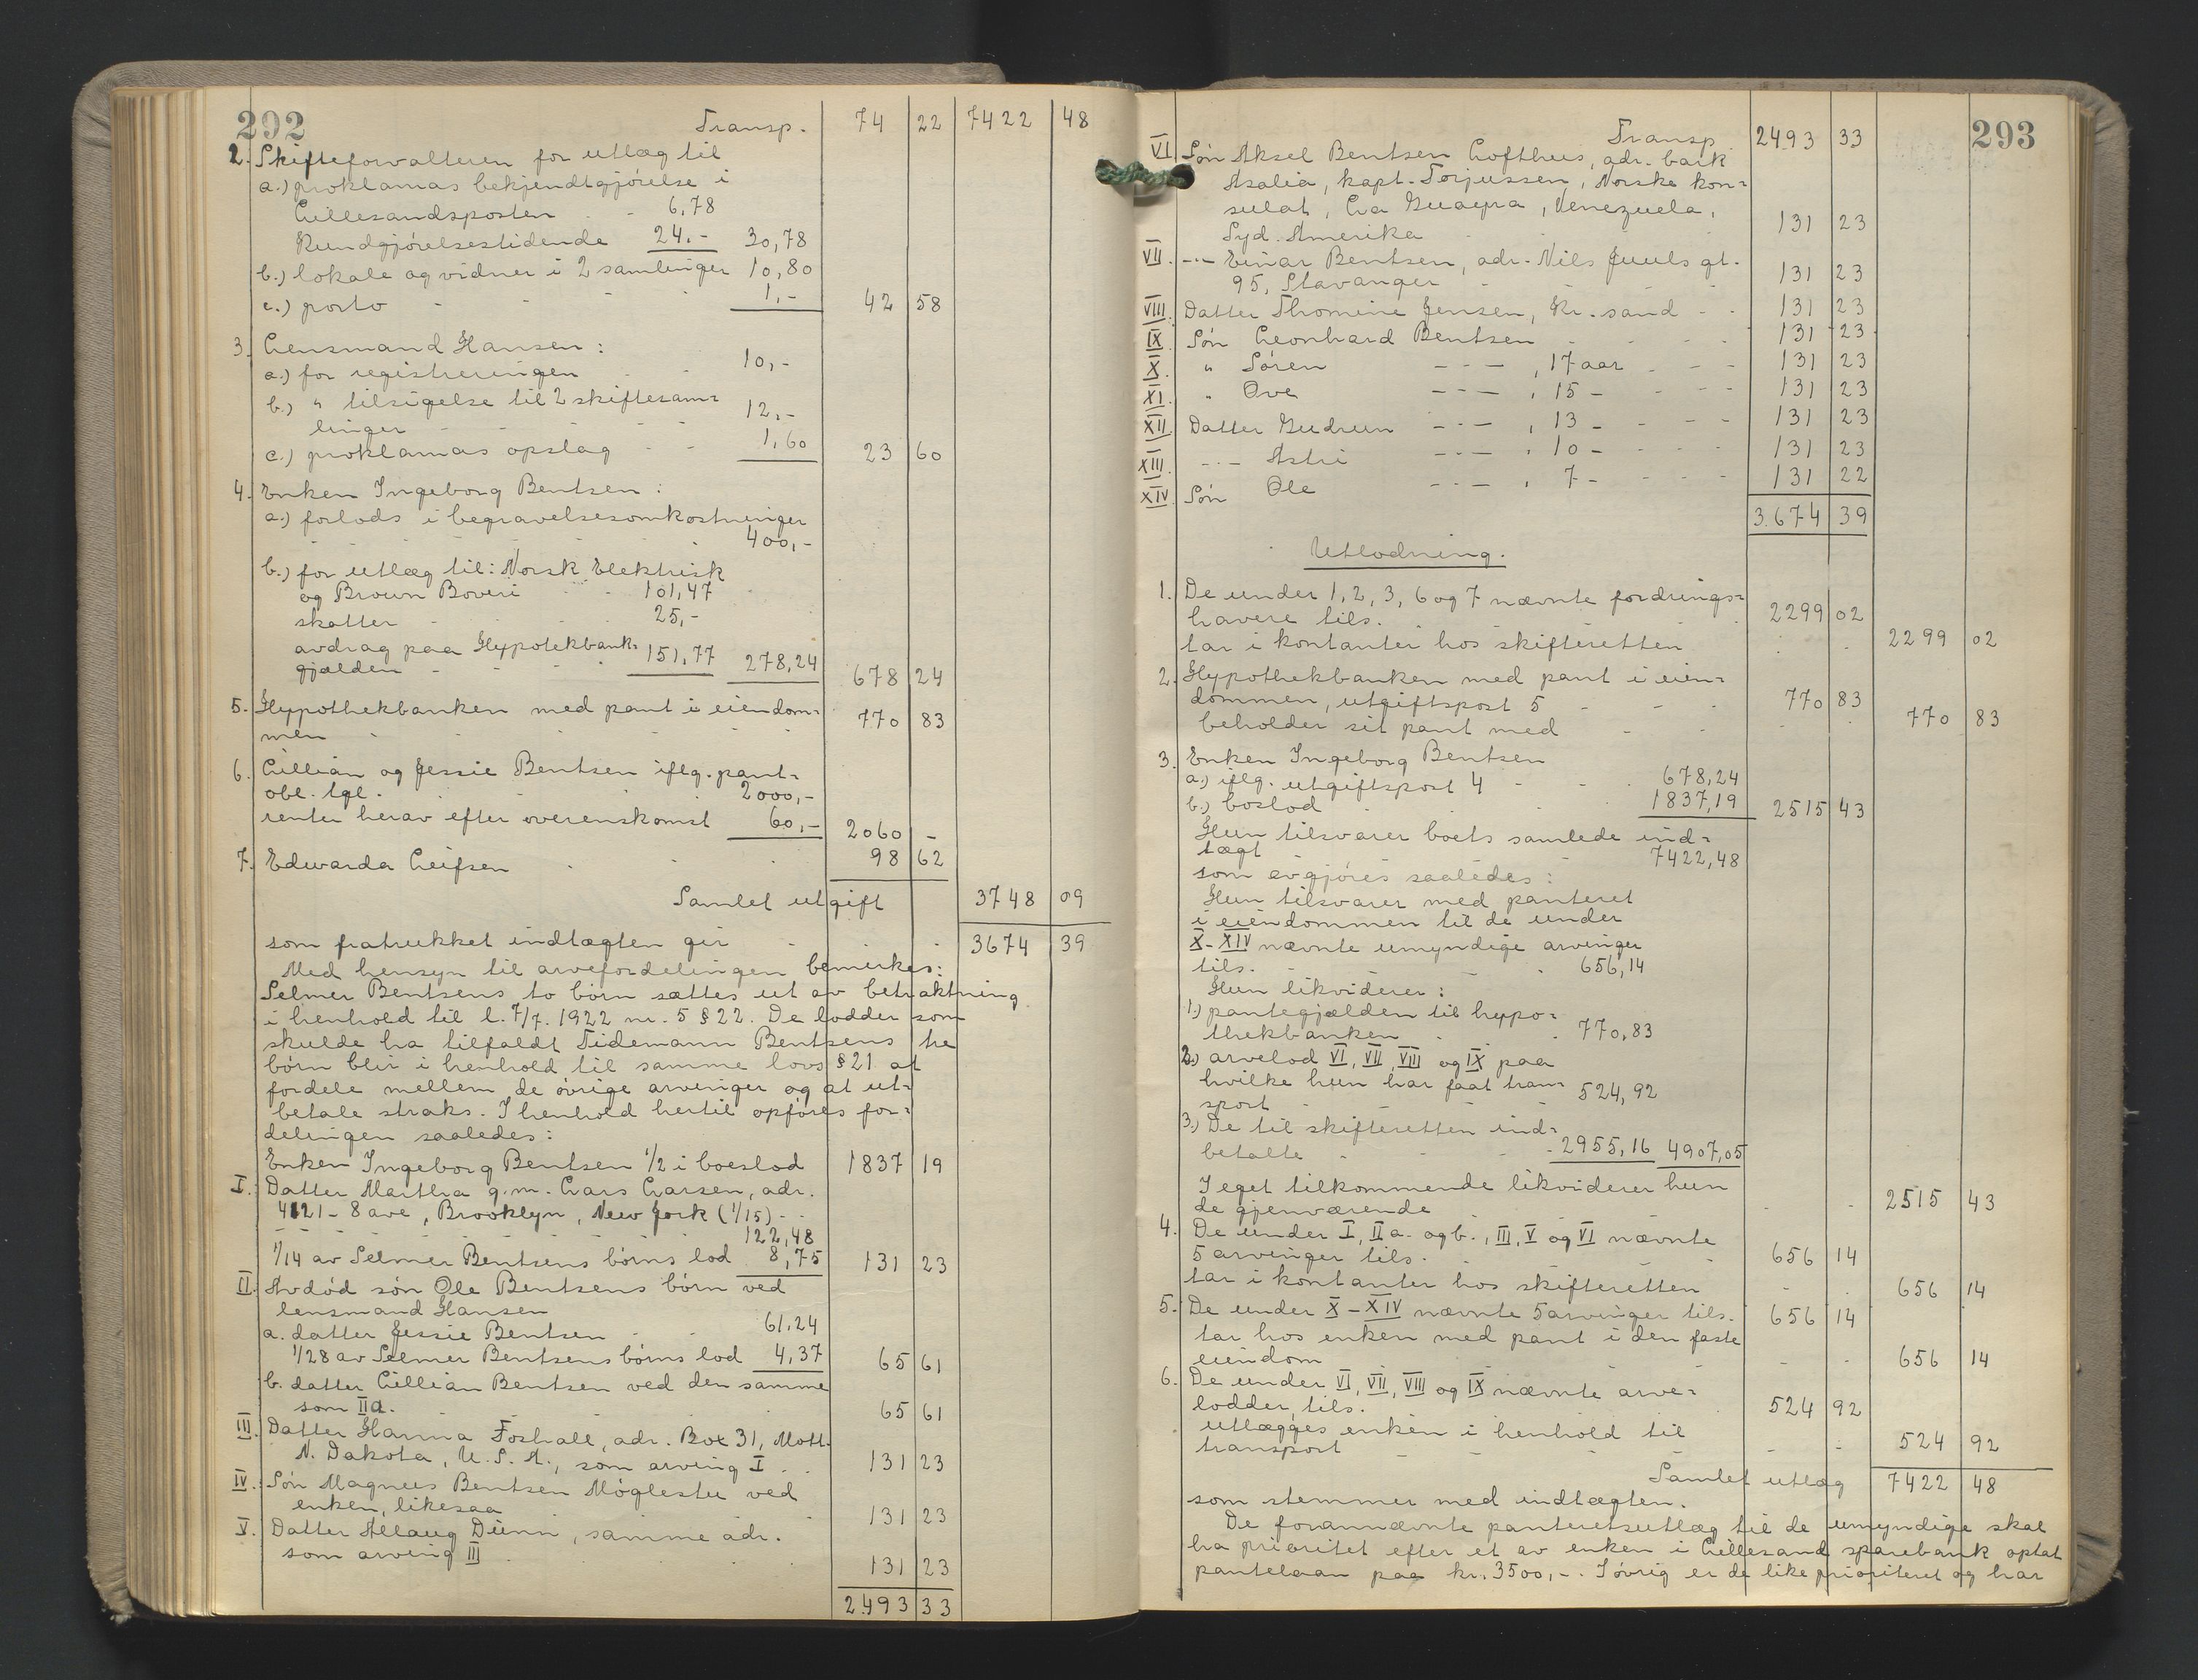 292
Transp. 74 22 7422 48
2. Skifteforvalteren for utlæg til
a.) proklamas bekjendtgjørelse i
Lillesandsposten - 6,78
Kundgjørelsestidende 24.- 30,78
b.) lokale og vidner i 2 samlinger 10,80
c.) porto - - - 1,- 42 58
3. Lensmand Hansen:
a.) for registreringen - - 10,-
b.) " tilsigelse til 2 skiftesam=
linger - - - - 12,-
c.) proklamas opslag - - 1,60 23 60
4. Enken Ingeborg Bentsen:
a.) forlods i begravelsesomkostninger
- - - - - 400,-
b.) for utlæg til: Norsk Elektrisk
og Brown Boveri - - 101,47
skatter - - - 25,-
avdrag paa Hypotekbank=
gjælden - - - 151,77 278,24 678 24
5. Hypothekbanken med pant i eiendom=
men - - - - - 770 83
6. Lillian og Jessie Bentsen iflg. pant-
obl. tgl. - - - 2000,-
renter herav efter overenskomst 60,- 2060 -
7. Edwarda Leifsen - - - 98 62
Samlet utgift 3748 09
som fratrukket indtægten gir - - 3674 39
Med hensyn til arvefordelingen bemerkes:
Selmer Bentsens to børn sættes ut av betraktning
i henhold til l. 7/7. 1922 nr. 5 § 22. De lodder som
skulde ha tilfaldt Tidemann Bentsens tre
børn blir i henhold til samme lovs § 21 at
fordele mellem de øvrige arvinger og at ut-
betale straks. I henhold hertil opføres for=
delingen saaledes:
Enken Ingeborg Bentsen 1/2 i boeslod 1837 19
I. Datter Martha g.m. Lars Larsen, adr.
4121 - 8 ave, Brooklyn, New York (1/15) - -
- - - - - 122,48
1/14 av Selmer Bentsens børns lod 8,75 131 23
II. Avdød søn Ole Bentsens børn ved
lensmand Hansen
a. datter Jessie Bentsen - - 61,24
1/28 av Selmer Bentsens børns lod 4,37 65 61
b. datter Lillian Bentsen ved den samme
som IIa. - - - - 65 61
III. Datter Hanna Foshall, adr. Box 31, Mott.
N. Dakota, U. S. A., som arving I - - 131 23
IV. Søn Magnus Bentsen Møglestu ved
enken, likesaa - - - 131 23
V. Datter Allaug Dünn, samme adr.
som arving III - - - - 131 23
2493 33
293
Transp. 2493 33
VI Søn Aksel Bentsen Lofthus, adr. bark
Asalia, kapt. Torjussen, Norske kon=
sulat, La Guayra, Venezuela,
Syd. Amerika - - - 131 23
VII. -"- Einar Bentsen, adr. Nils Juuls gt.
95, Stavanger - - - 131 23
VIII. Datter Thomine Jensen, Kr.sand - - 131 23
IX Søn Leonhard Bentsen - - - 131 23
X. " Søren -"- , 17 aar - - - 131 23
XI. " Ove -"- , 15 - - - - 131 23
XII. Datter Gudrun -"- , 13 - - - - 131 23
XIII. -"- Astri -"- , 10 - - - - 131 23
XIV. Søn Ole -"- , 7 - - - - 131 22
3.674 39
Utlodning.
1. De under 1, 2, 3, 6 og 7 nævnte fordrings=
havere tils. - - - - 2299 02
tar i kontanter hos skifteretten - - 2299 02
2. Hypothekbanken med pant i eien=
dommen, utgiftspost 5 - - - 770 83
beholder sit pant med - - - - 770 83
3. Enken Ingeborg Bentsen
a.) iflg. utgiftspost 4 - - - 678,24
b.) boslod - - - 1837,19 2515 43
Hun tilsvarer boets samlede ind=
tægt 7422,48
som avgjøres saaledes:
Hun tilsvarer med panteret
i eiendommen til de under
X-XIV nævnte umyndige arvinger
tils. - - - 656,14
Hun likviderer:
1.) pantegjælden til hypo=
thekbanken - - 770,83
2.) arvelod VI, VII, VIII og IX paa
hvilke hun har faat tran=
sport - - - 524,92
3.) De til skifteretten ind=
betalte - - - 2955,16 4907,05
I eget tilkommende likviderer hun
de gjenværende - - - 2515 43
4. De under I, II a. og b., III, V og VI nævnte
5 arvinger tils. - - - 656 14
tar i kontanter hos skifteretten - - 656 14
5. De under X-XIV nævnte 5 arvinger tils. 656 14
tar hos enken med pant i den faste
eiendom - - 656 14
6. De under VI, VII, VIII og IX nævnte arve=
lodder, tils. - - - 524 92
utlægges enken i henhold til
transport - - - - 524 92
Samlet utlæg 7422 48
som stemmer med indtægten.
De forannævnte panteretsutlæg til de umyndige skal
ha prioritet efter et av enken i Lillesand sparebank optat
pantelaan paa kr. 3500,-. I øvrig er de like prioriteret og har